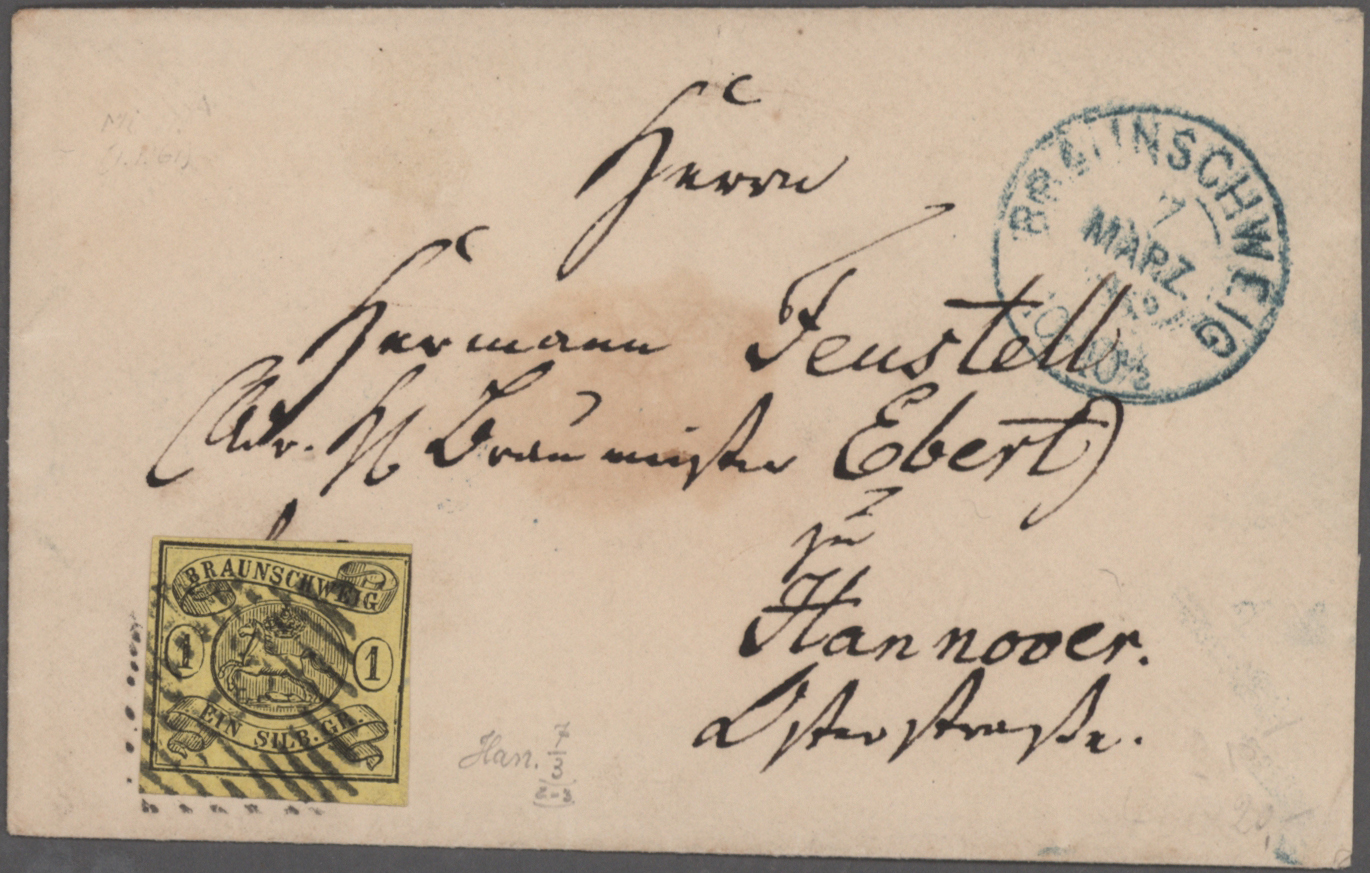 Herrn
Hermann Feustell
(Adr. H Braumeister Ebert)
zu
Hannover.
Osterstraße.
BRAUNSCHWEIG
7
MÄRZ
BRAUNSCHWEIG
1 1
EIN SILB. GR.
Han. 7/3
20